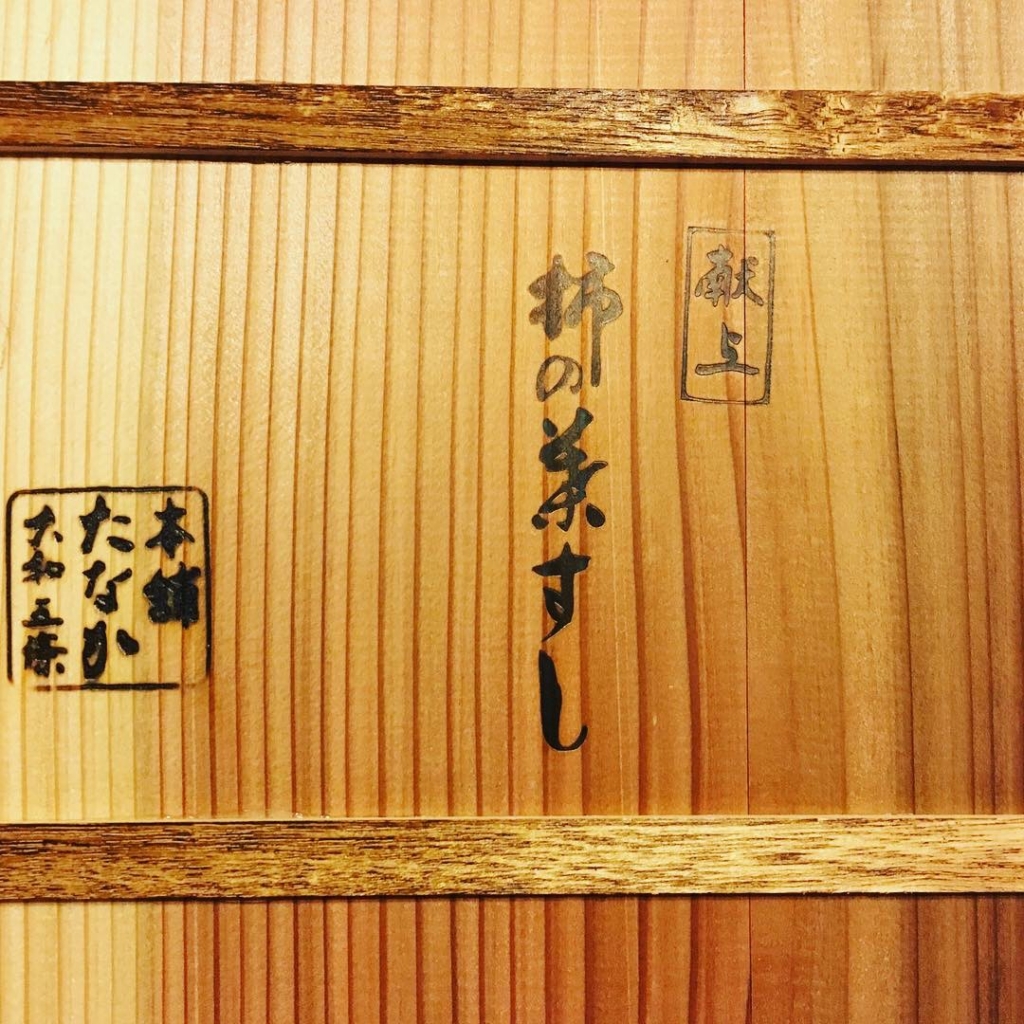 献上
柿の葉すし
本舗
たなか
大和五條